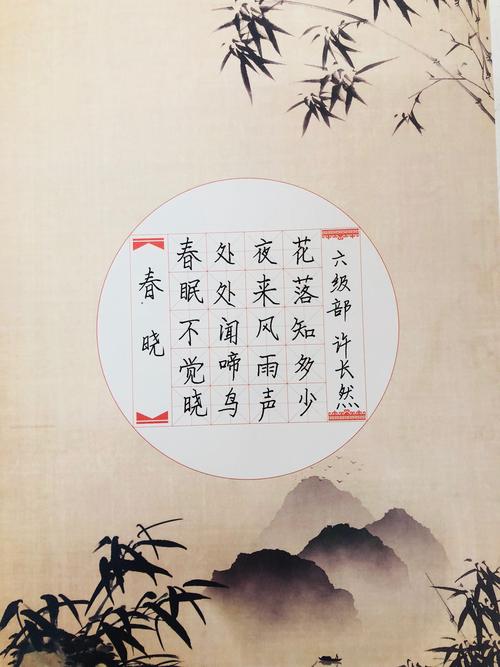 春晓
春眠不觉晓
处处闻啼鸟
夜来风雨声
花落知多少
六级部 许长然